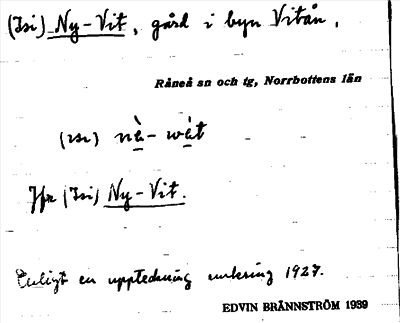 (Isi) Ny-Vit, gård i byn Vitån,
Råneå sn och tg, Norrbottens län
(isi) nè-wèt
Jfr (Isi) Ny-Vit.
Enligt en uppteckning omkring 1927.
EDVIN BRÄNNSTRÖM 1939